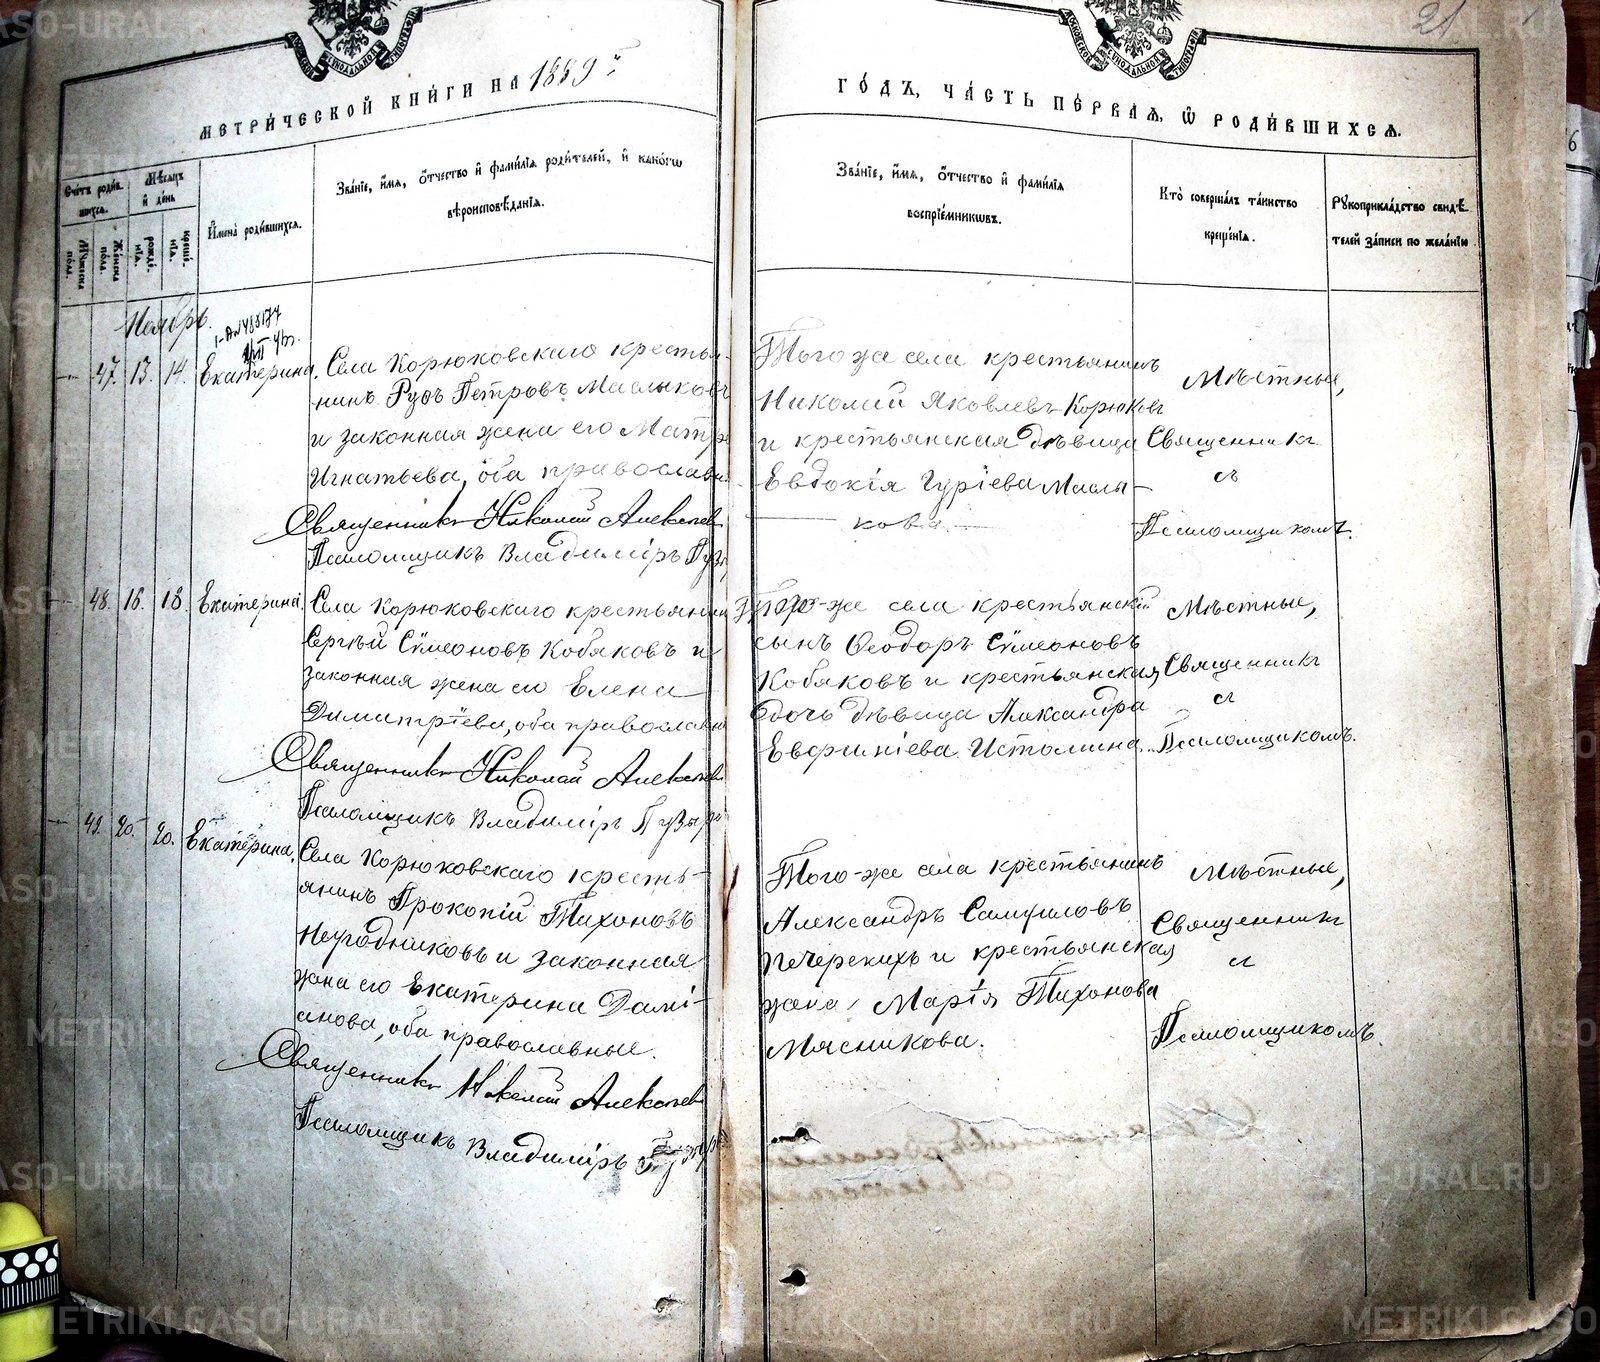 21
МЕТРИЧЕСКОЙ КНИГИ НА 1889 й
ГОДЪ, ЧАСТЬ ПЕРВАЯ, Ѡ РОДИВШИХСЯ.
Счетъ родив-
шихся.
Мужеска пола.
Женска пола.
Мѣсяцъ
и день
рожде-
нія.
креще-
нія.
Имена родившихся.
Званіе, имя, отчество и фамилія родителей, и какогѡ
вѣроисповѣданія.
Званіе, имя, отчество и фамилія
воспріемниковъ.
Кто совершалъ таинство
крещенія.
Рукоприкладство свидѣ-
телей записи по желанію
Ноябрь.
47. 13. 14. Екатерина.
Села Корюковскаго крестья-
нинъ Руфъ Петровъ Маслыковъ
и законная жена его Матр
Игнатьева, оба православн
Священникъ Николай Алексѣев
Псаломщикъ Владиміръ Пуз
Того же села крестьянинъ
Николай Яковлевъ Корюковъ
и крестьянская дѣвица
Евдокія Гуріева Маслы-
кова.
Мѣстные,
Священникъ
съ
Псаломщикомъ.
48. 16. 18. Екатерина.
Села Корюковскаго крестьянин
Сергѣй Сѵмеоновъ Кобяковъ и
законная жена его Елена
Димитріева, оба православн
Священникъ Николай Алексѣев
Псаломщикъ Владиміръ Пузыр
Того-же села крестьянскій
сынъ Ѳеодоръ Сѵмеоновъ
Кобяковъ и крестьянская
дочь дѣвица Александра
Евфиміева Истомина.
Мѣстные,
Священникъ
съ
Псаломщикомъ.
49. 20. 20. Екатерина.
Села Корюковскаго кресть-
янинъ Прокопій Тихоновъ
Неугодниковъ и законная
жена его Екатерина Дамі-
анова, оба православные.
Священникъ Николай Алексѣев
Псаломщикъ Владиміръ
Того-же села крестьянинъ
Александръ Самуиловъ
Печерскихъ и крестьянская
жена Марія Тихонова
Мясникова.
Мѣстные,
Священникъ
съ
Псаломщикомъ.
METRIKI.GASO-URAL.RU